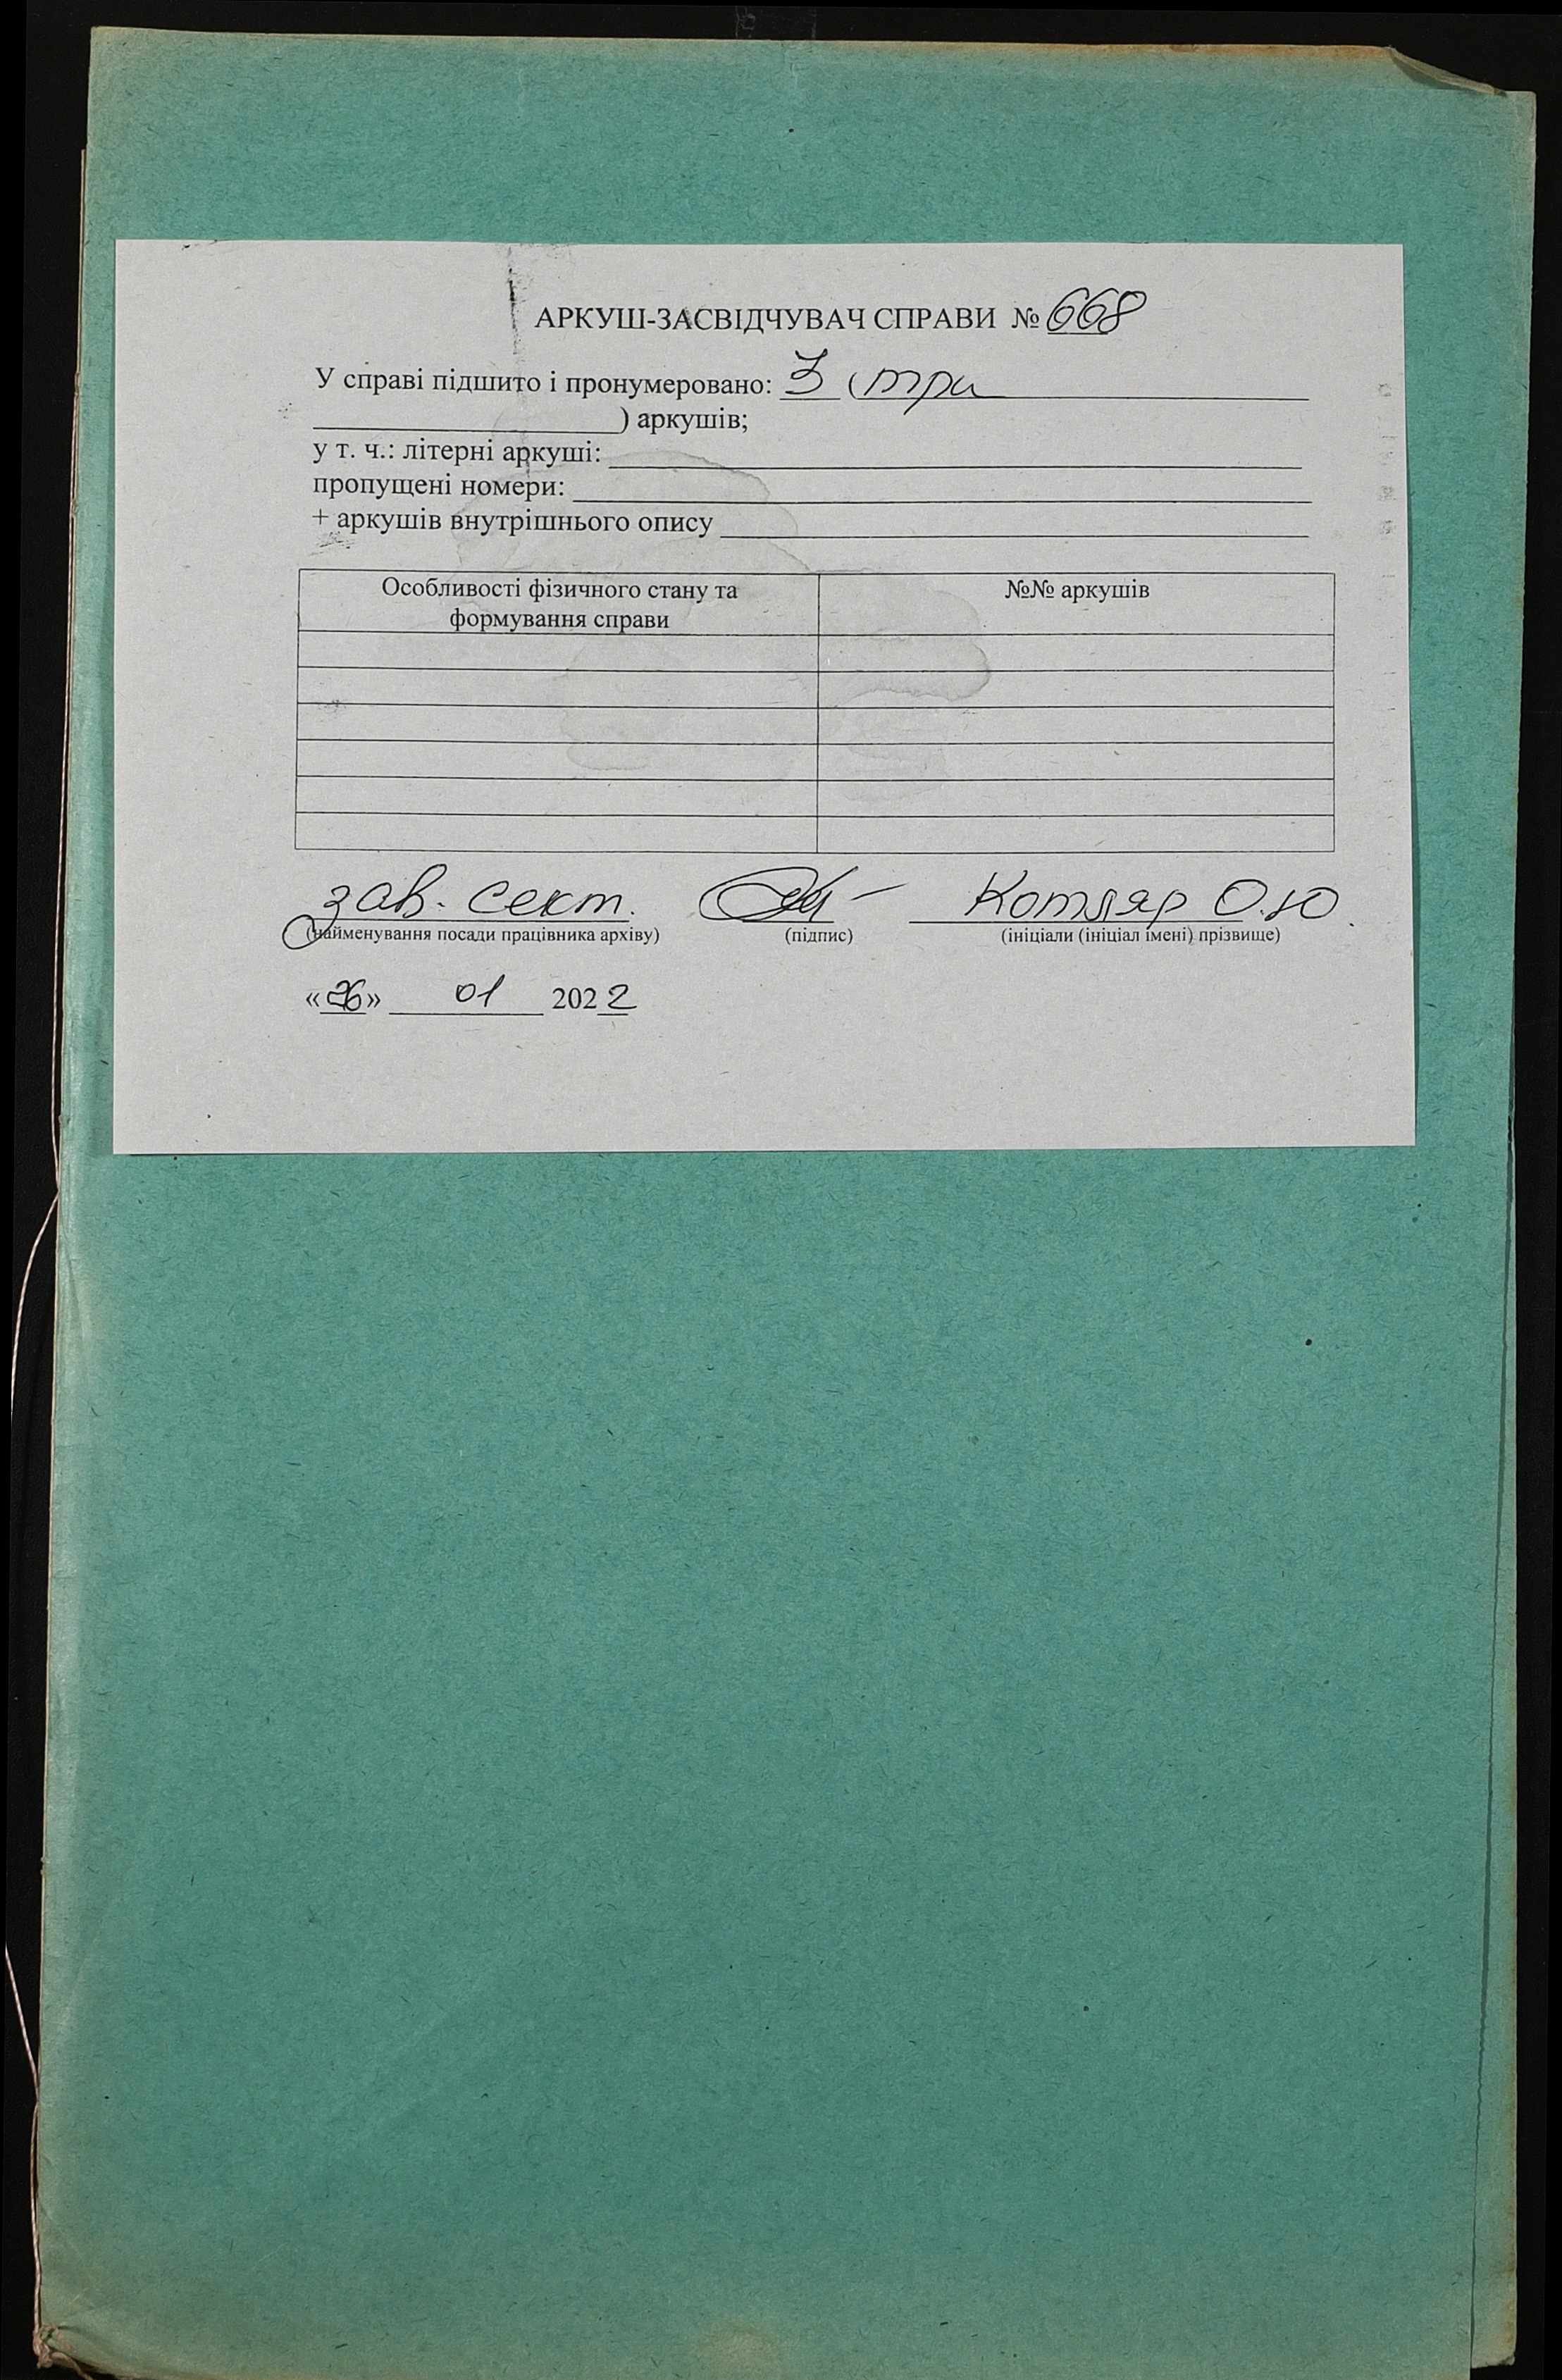 АРКУШ-ЗАСВІДЧУВАЧ СПРАВИ № 668
У справі підшито і пронумеровано: 3 (три
) аркушів;
у т. ч.: літерні аркуші:
пропущені номери:
+ аркушів внутрішнього опису
Особливості фізичного стану та №№ аркушів
формування справи
зав. сект. Котляр О.Ю.
(найменування посади працівника архіву) (підпис) (ініціали (ініціал імені) прізвище)
«26» 01 2022